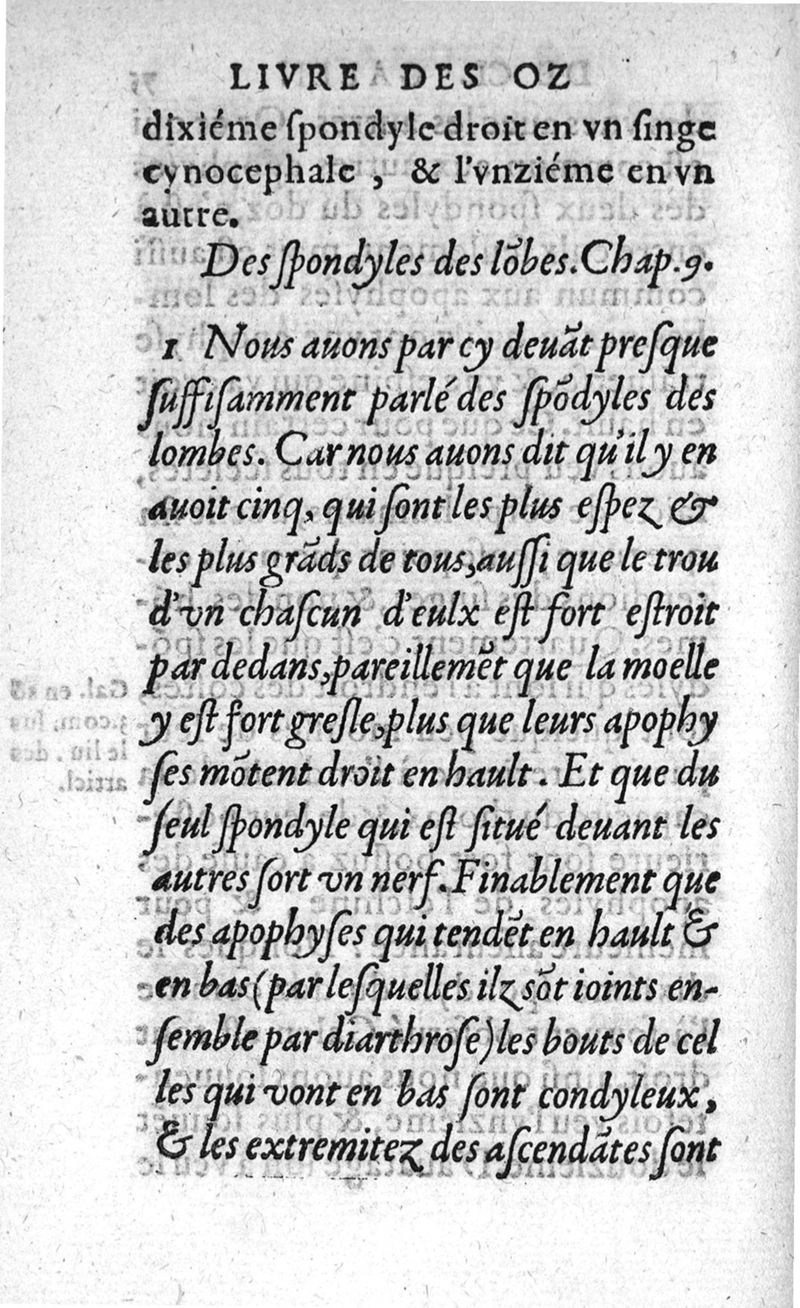 LIVRE DES OZ
dixiéme ſpondyle droit en vn ſinge
cynocephale , & l'vnziéme en vn
autre.
Des ſpondyles des lõbes. Chap. 9.
1 Nous auons par cy deuãt preſque
ſuffiſamment parlé des ſpõdyles des
lombes. Car nous auons dit qu'il y en
auoit cinq, qui ſont les plus eſpez &
les plus grãds de tous, auſſi que le trou
d'vn chaſcun d'eulx eſt fort eſtroit
par dedans, pareillemẽt que la moelle
y eſt fort greſle, plus que leurs apophy
ſes mõtent droit en hault. Et que du
ſeul ſpondyle qui eſt ſitué deuant les
autres ſort vn nerf. Finablement que
des apophyſes qui tendẽt en hault &
en bas (par leſquelles ilz sõt ioints en-
ſemble par diarthroſe) les bouts de cel
les qui vont en bas ſont condyleux,
& les extremitez des aſcendãtes ſont